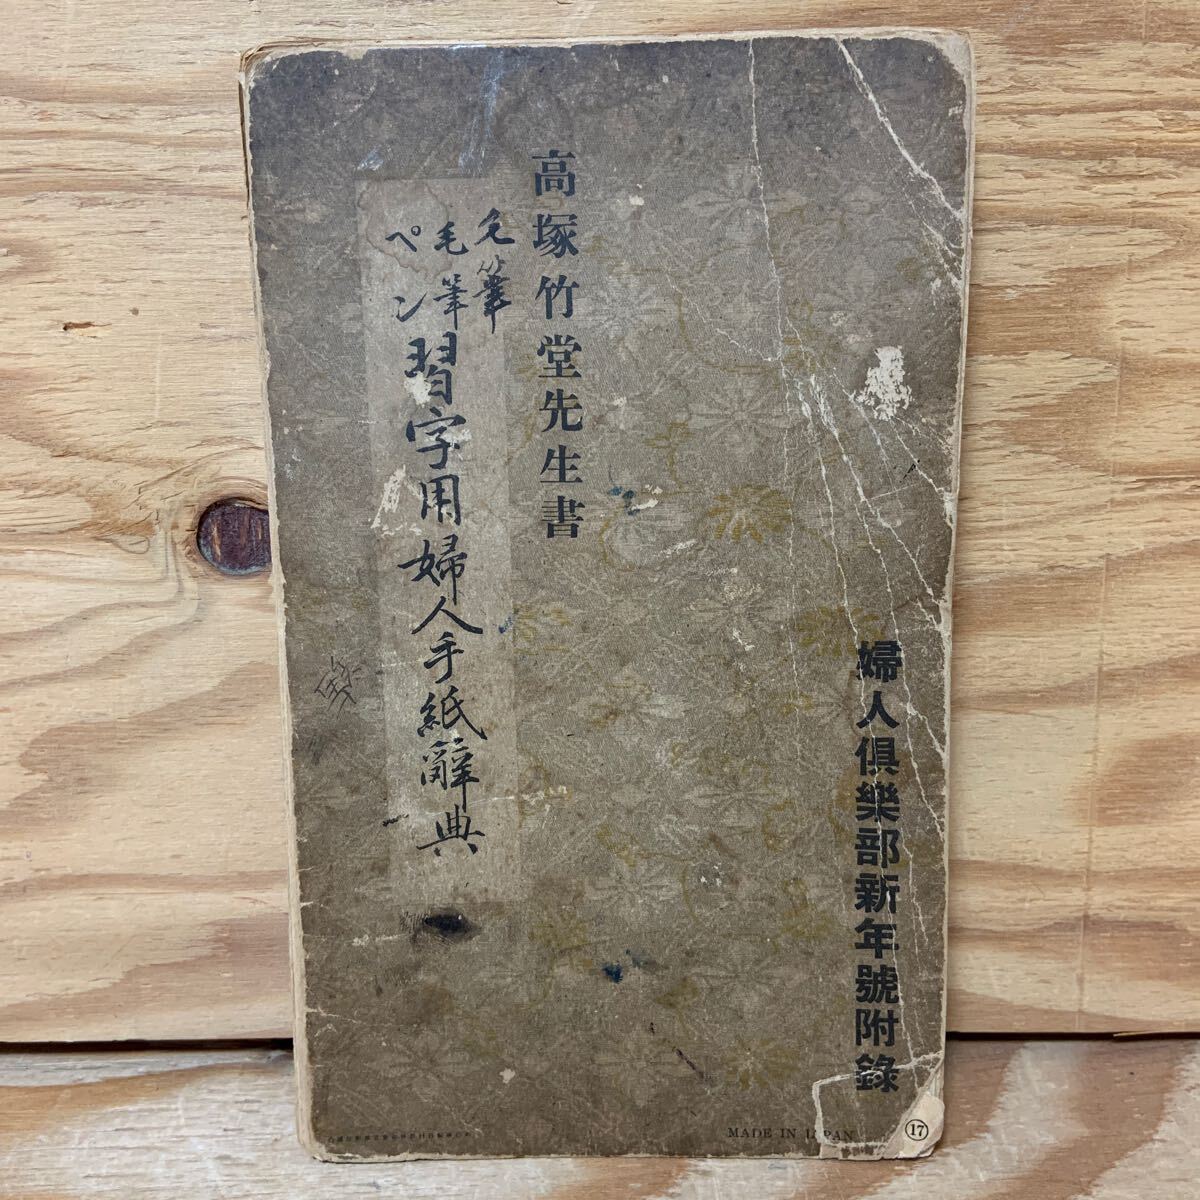 婦人倶樂部新年號附錄
高塚竹堂先生書
毛筆
毛筆
ペン
習字用婦人手紙辭典
MADE IN JAPAN
17